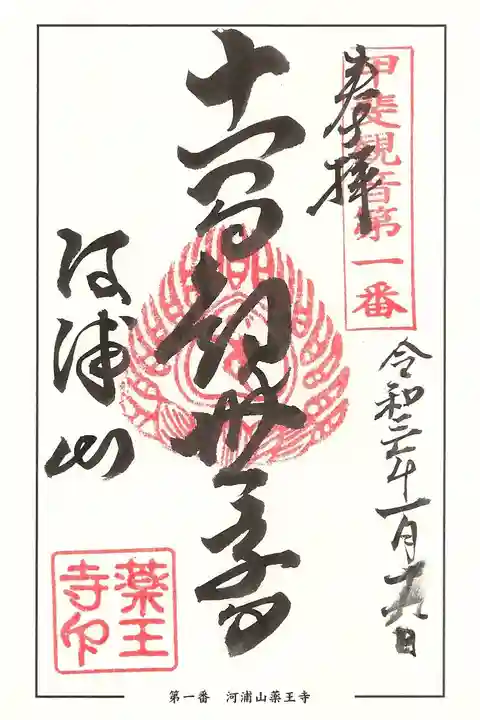 甲斐観音第一番
奉拝
令和三年一月
十一面観世音
河浦山
薬王
寺印
第一番　河浦山薬王寺